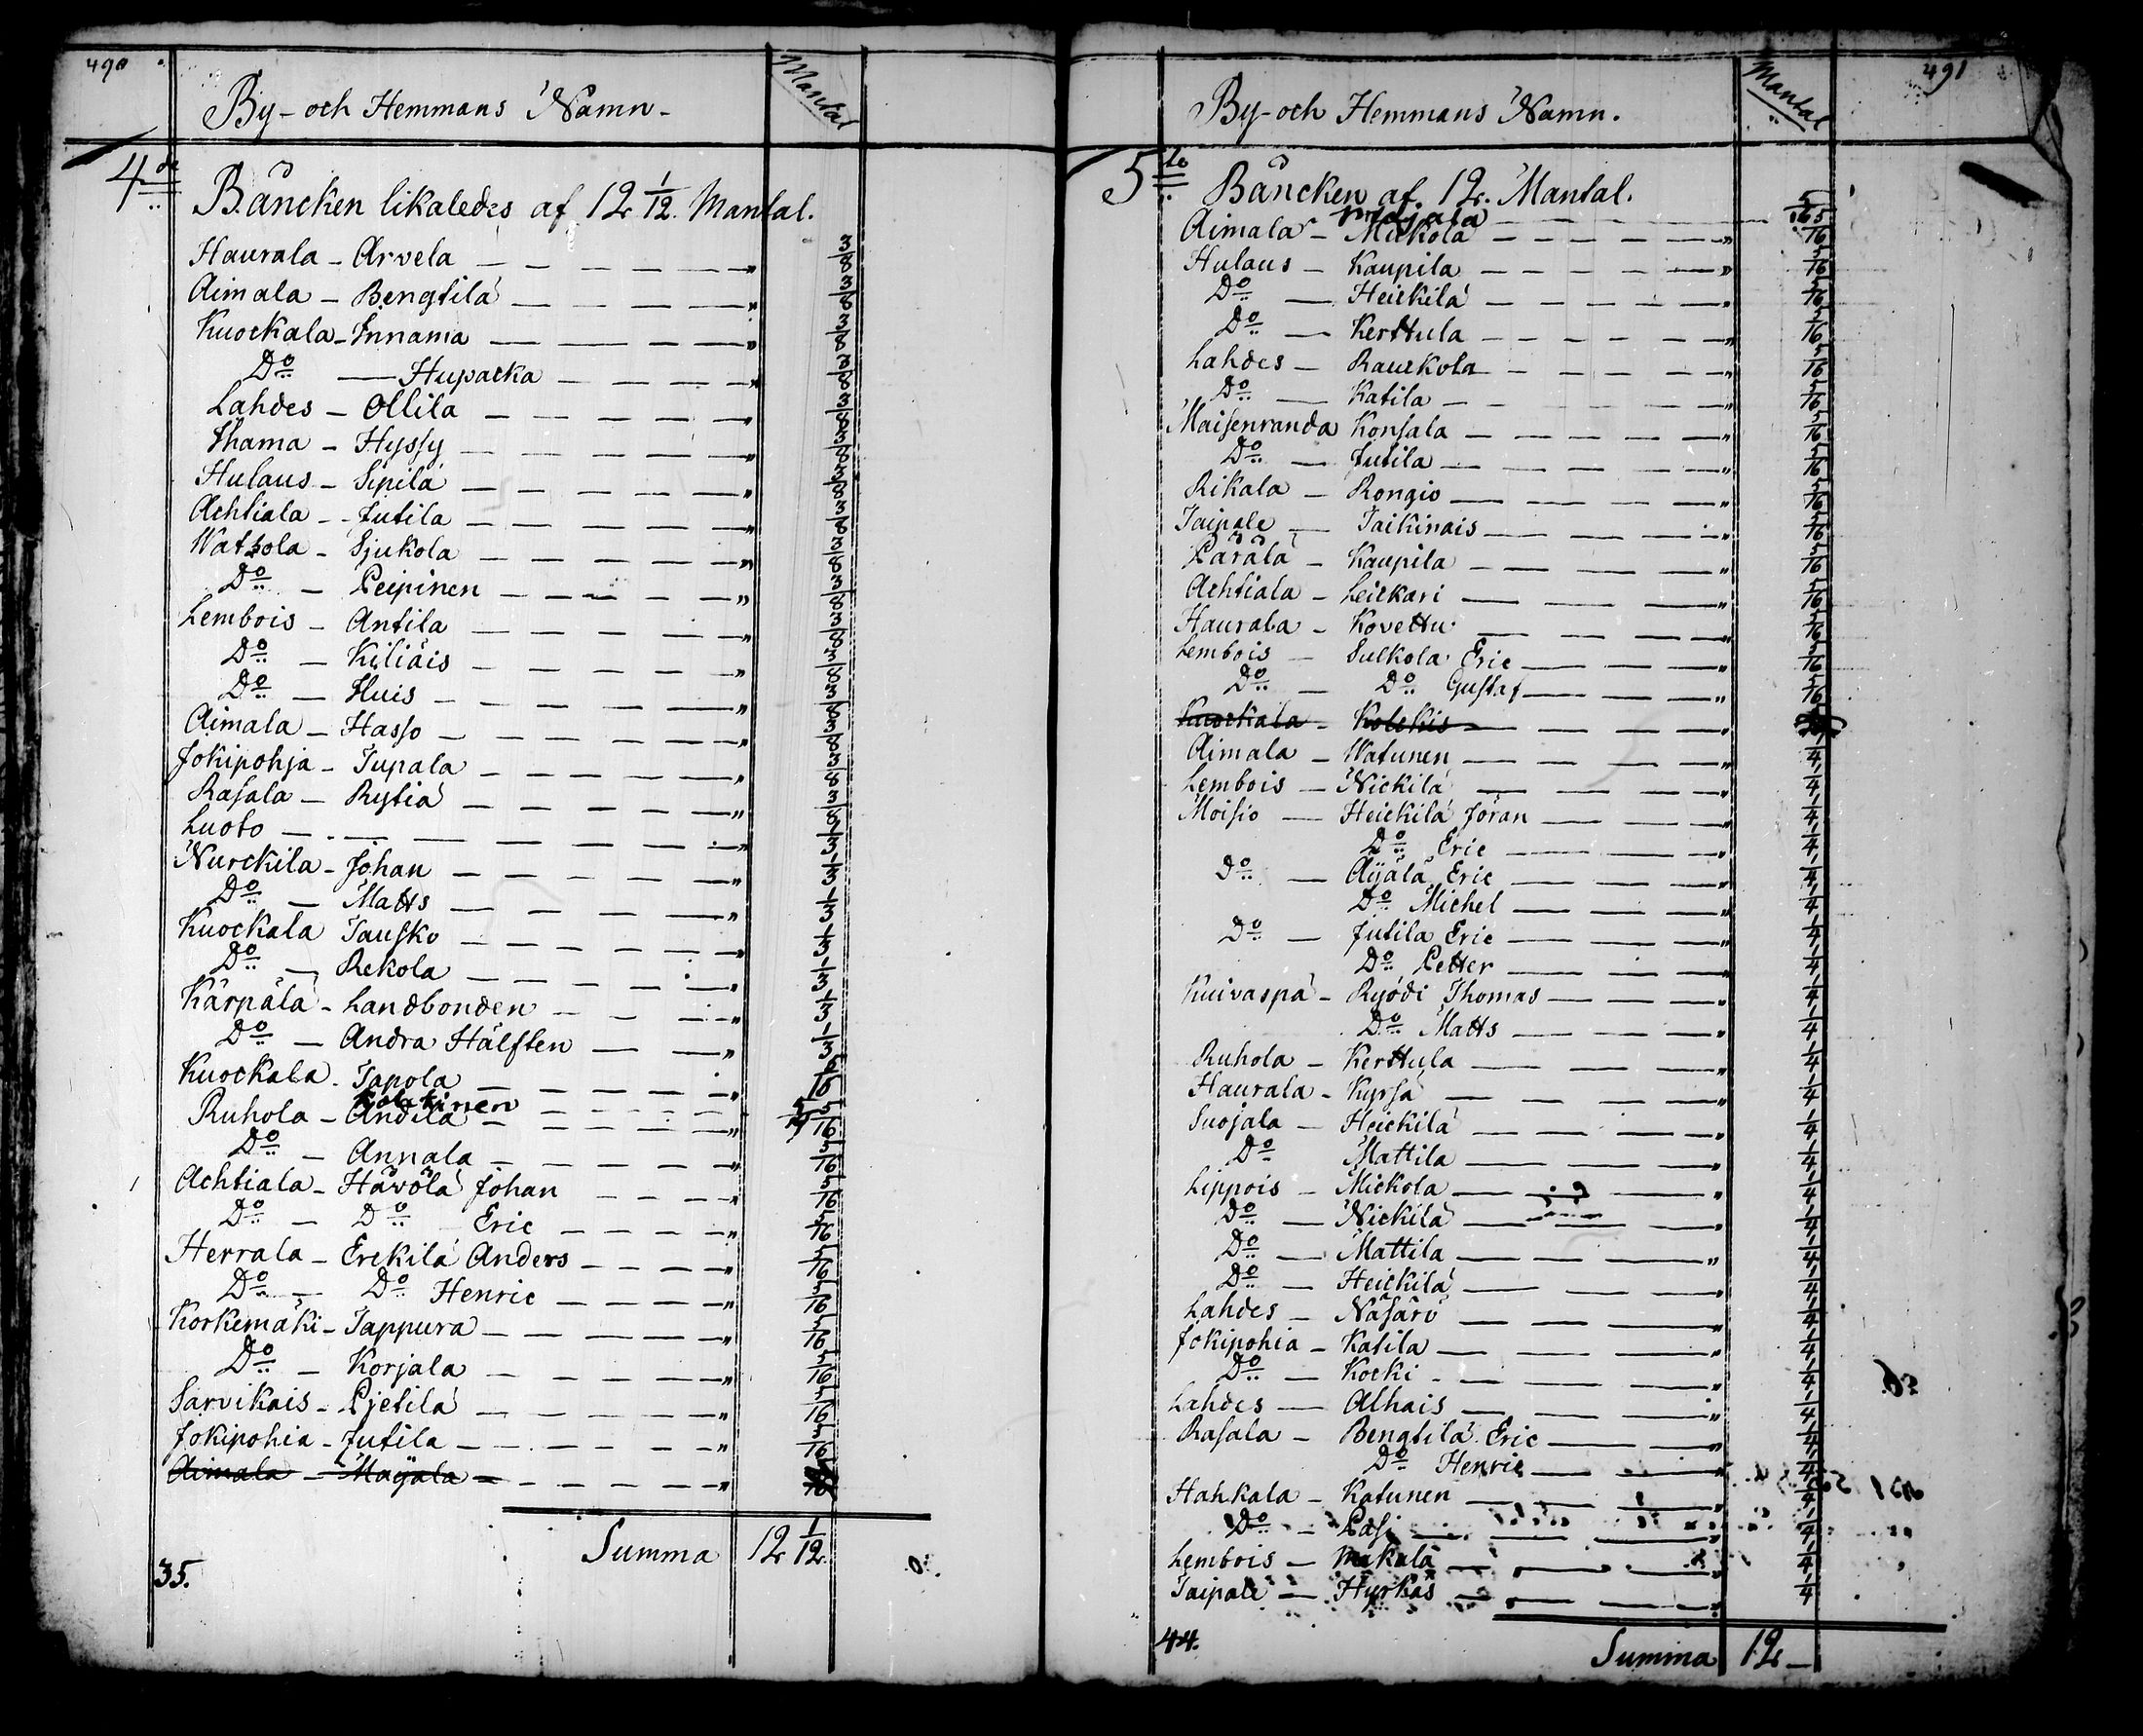 490
By - och Hemmans Namn -
Mantal
4de Bäncken likaledes af 12 1/12 Mantal.
Haurala - Arvela 3/8
Aimala - Bengtilä 3/8
Kuockala - Innama 3/8
Do - Hupacka 3/8
Lahdes - Ollila 3/8
Ihama - Hyssy 3/8
Hulaus - Sipilä 3/8
Achtiala - Jutila 3/8
Watzola - Sjukola 3/8
Do - Peipinen 3/8
Lembois - Antila 3/8
Do - Kiliäis 3/8
Do - Huis 3/8
Aimala - Hasso 3/8
Jokipohja - Tupala 3/8
Rasala - Rytiä 3/8
Luoto 1/3
Nurckila - Johan 1/3
Do - Matts 1/3
Kuockala Tausko 1/3
Do - Rekola 1/3
Kärpälä - Landbonden 1/3
Do - Andra Hälften 1/3
Kuockala - Tapola
Kolckinen 5/16
Ruhola - Andila 5/16
Do - Annala 5/16
Achtiala - Hävölä Johan 5/16
Do - Do Eric 5/16
Herrala - Erckilä Anders 5/16
Do - Do Henric 5/16
Korkemäki - Tappura 5/16
Do - Korjala 5/16
Sarvikais - Pjetilä 5/16
Jokipohia - Jutila 5/16
Aimala - Maÿala
Summa 12 1/12
35.
491
By - och Hemmans Namn.
Mantal
5te Bäncken af 12. Mantal.
Maÿala 5/16
Aimala - Mickola 5/16
Hulaus - Kaupila 5/16
Do - Heickilä 5/16
Do - Kerttula 5/16
Lahdes - Rauckola 5/16
Do - Katila 5/16
Maisenranda Konsala 5/16
Do - Jutila 5/16
Rikala - Rongio 5/16
Taipale - Taikinais 5/16
Pärälä - Kaupila 5/16
Achtiala - Leickari 5/16
Haurala - Kovettu 5/16
Lembois - Sulkola Eric 5/16
Do - Do Gustaf 5/16
Kuockala - Kolckis
Aimala - Watunen 1/4
Lembois - Nickilä 1/4
Moisio - Heickilä Jöran 1/4
Do Eric 1/4
Do - Äÿälä Eric 1/4
Do Michel 1/4
Do - Jutila Eric 1/4
Do Petter 1/4
Kuivaspä - Ryödi Thomas 1/4
Do Matts 1/4
Ruhola - Kerttula 1/4
Haurala - Kyrsä 1/4
Suojala - Heickilä 1/4
Do Mattila 1/4
Lippois - Mickola 1/4
Do - Nickilä 1/4
Do - Mattila 1/4
Do - Heickilä 1/4
Lahdes - Näsärö 1/4
Jokipohia - Katila 1/4
Do - Kocki 1/4
Lahdes - Alhais 1/4
Rasala - Bengtilä Eric 1/4
Do Henric 1/4
Hahkala - Katunen 1/4
Do - Pasi 1/4
Lembois - Makala 1/4
Taipale - Hyrkäs 1/4
Summa 12 -
44.